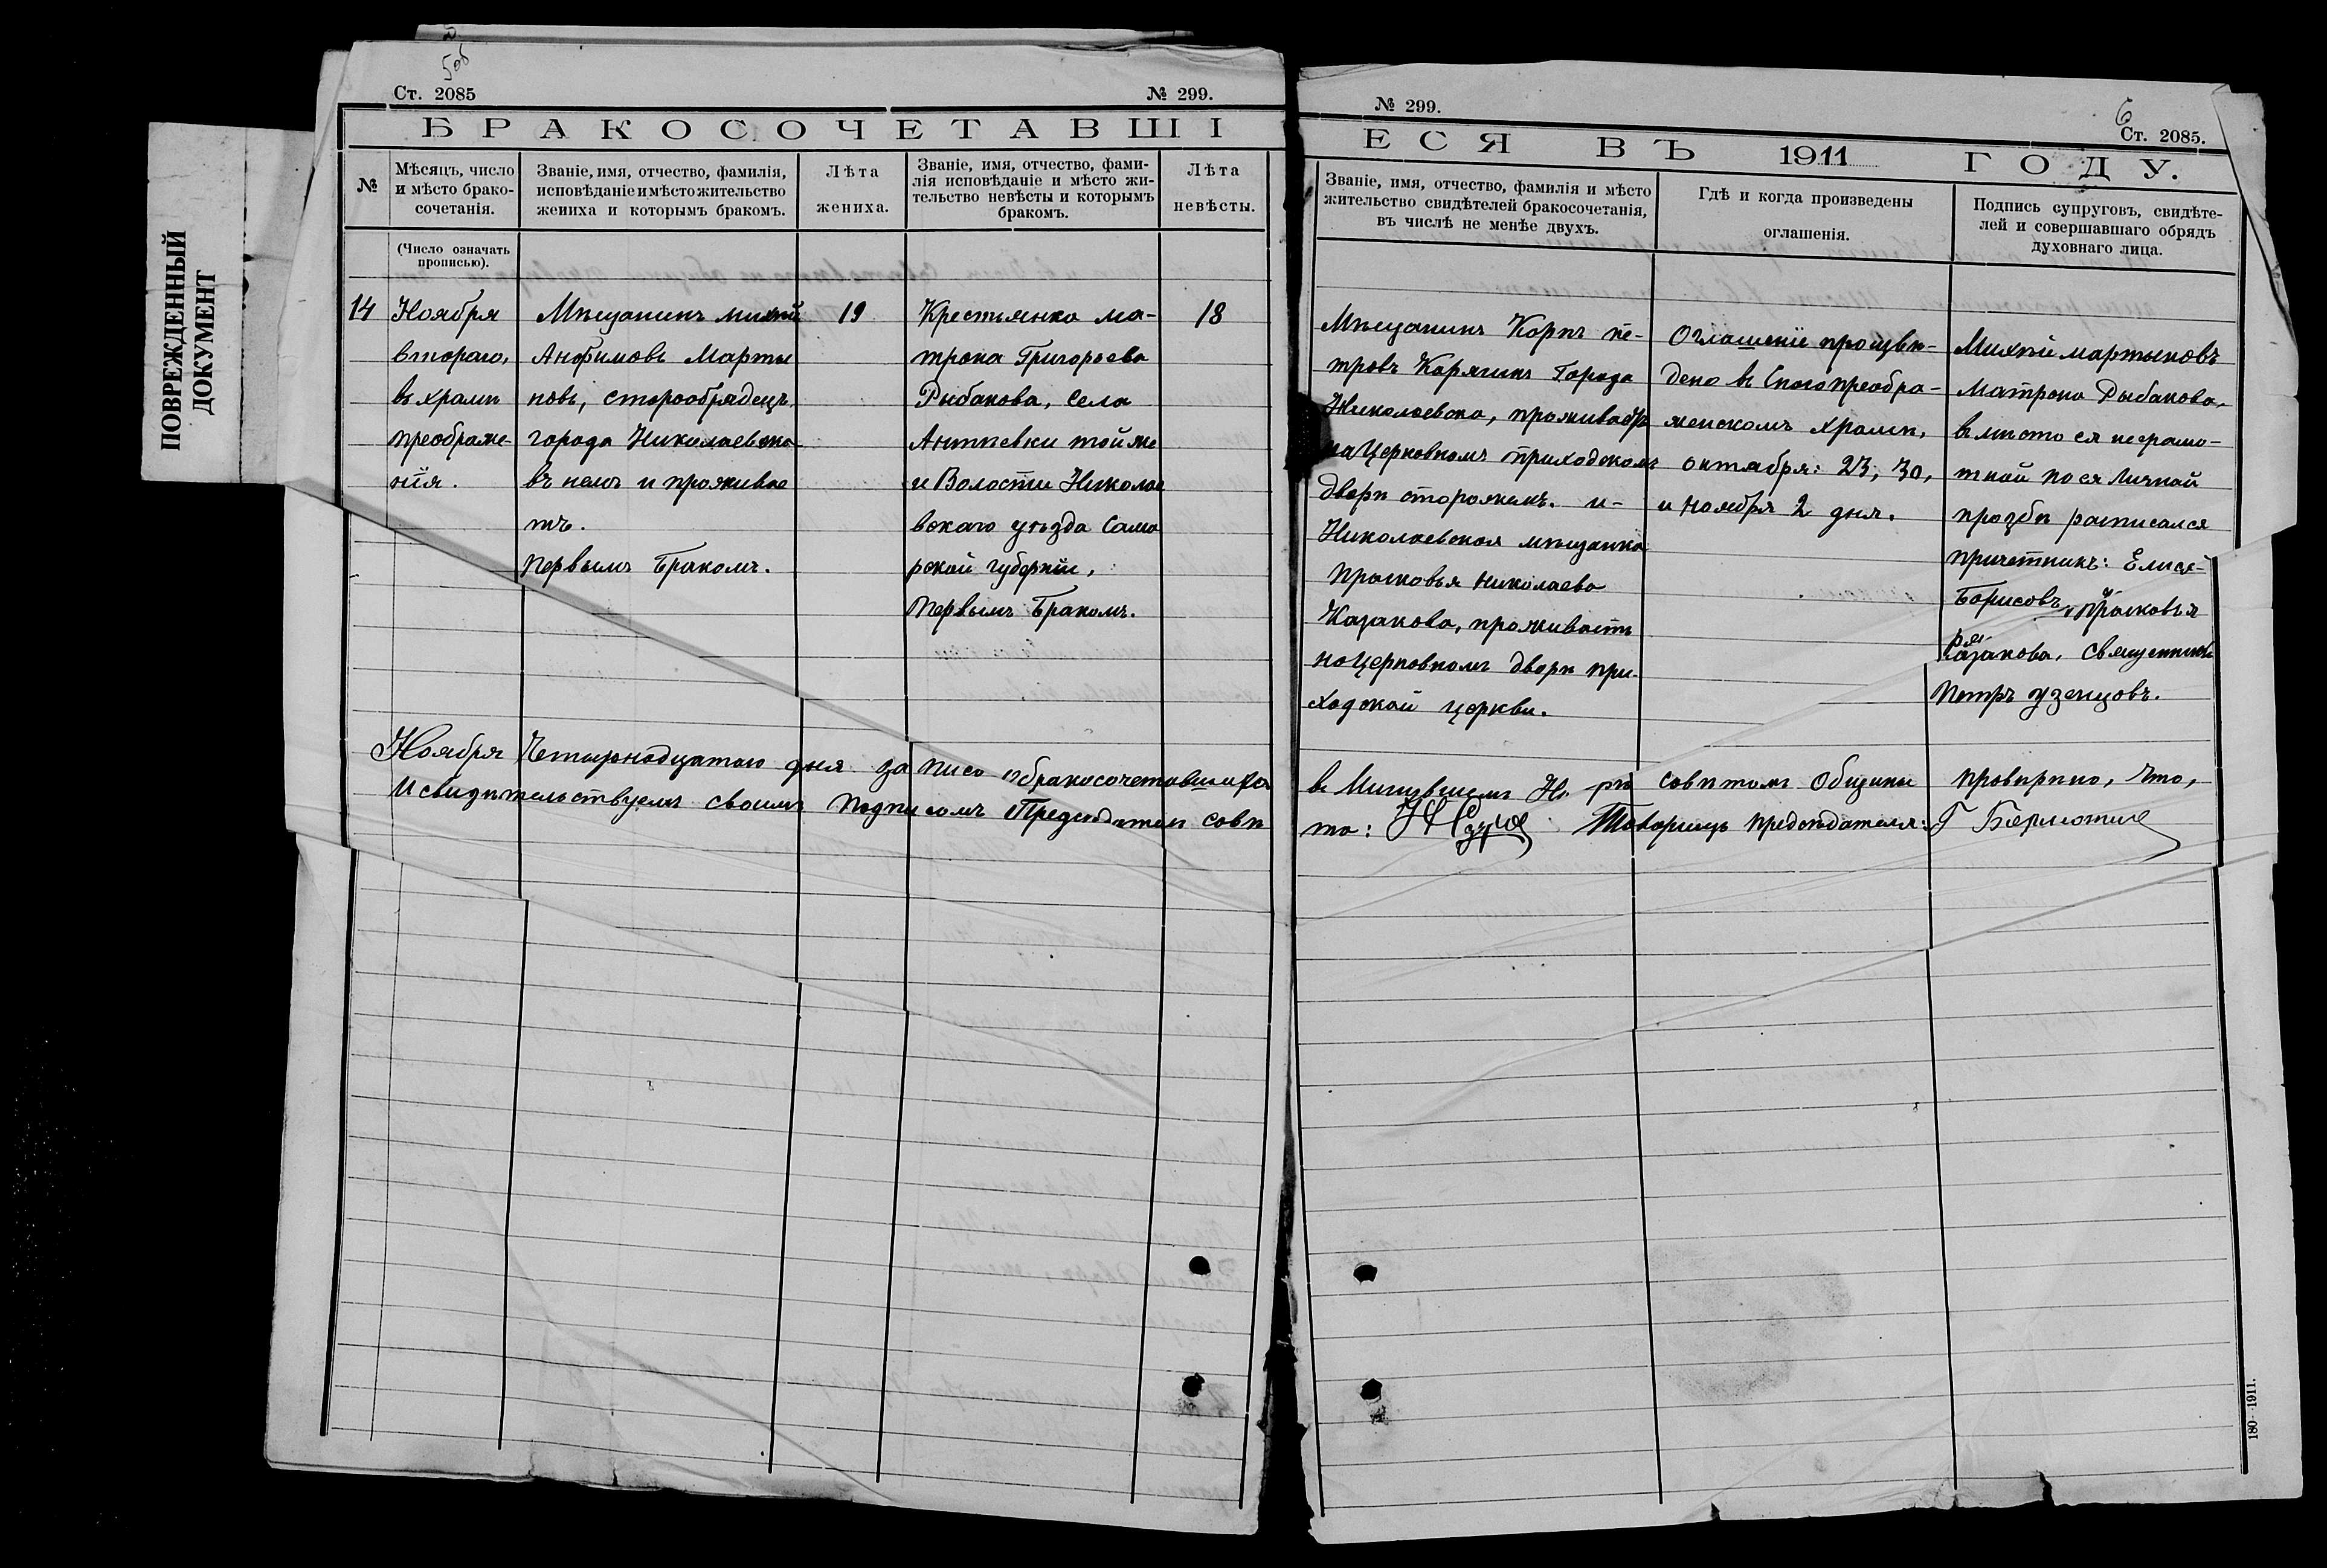 ПОВРЕЖДЕННЫЙ
ДОКУМЕНТ
5об
Ст. 2085
№ 299.
БРАКОСОЧЕТАВШІ
№
Мѣсяцъ, число
и мѣсто брако-
сочетанія.
Званіе, имя, отчество, фамилія,
исповѣданіе и мѣсто жительство
жениха и которымъ бракомъ.
Лѣта
жениха.
Званіе, имя, отчество, фами-
лія исповѣданіе и мѣсто жи-
тельство невѣсты и которымъ
бракомъ.
Лѣта
невѣсты.
(Число означать
прописью).
14
Ноября
второго,
въ храмѣ
преображе-
нія.
Мѣщанинъ
Анфимовъ Марты
новъ, старообрядецъ
города Николаевска
въ немъ и прожива
тъ.
Первымъ Бракомъ.
19
Крестьянка ма-
трона Григорьева
Рыбакова, села
той же
и Волости Николае
вскаго уѣзда Сама
рской губерніи,
Первымъ Бракомъ.
18
Ноября Четырнадцатаго дня запись о бракосочетавшихся
И свидѣтельствуемъ своимъ подписомъ Предсѣдатель совѣ
№ 299.
6
Ст. 2085.
ЕСЯ ВЪ 1911 ГОДУ.
Званіе, имя, отчество, фамилія и мѣсто
жительство свидѣтелей бракосочетанія,
въ числѣ не менѣе двухъ.
Гдѣ и когда произведены
оглашенія.
Подпись супруговъ, свидѣте-
лей и совершавшаго обрядъ
духовнаго лица.
Мѣщанинъ Карпъ пе-
тровъ Карягинъ Города
Николаевска,
на Церковномъ приходскомъ
дворѣ сторожемъ. и-
Николаевская мѣщанка
Прасковья николаева
Казакова, проживаетъ
на церковномъ дворѣ при-
ходской церкви.
Оглашеніе произве-
дено въ Спасопреобра-
женскомъ храмѣ,
октября: 23, 30,
и ноября 2 дня.
мартыновъ
Матрона Рыбакова,
вместо ея неграмо-
тной по ея личной
прозбѣ расписался
причетникъ: Елисѣ-
Борисовъ, и Прасковья
Казакова, священникъ
Петръ Узенцовъ.
въ Минувшемъ совѣтомъ Общины провѣрено, что,
та: Товарищъ предсѣдателя: Г
180—1911.